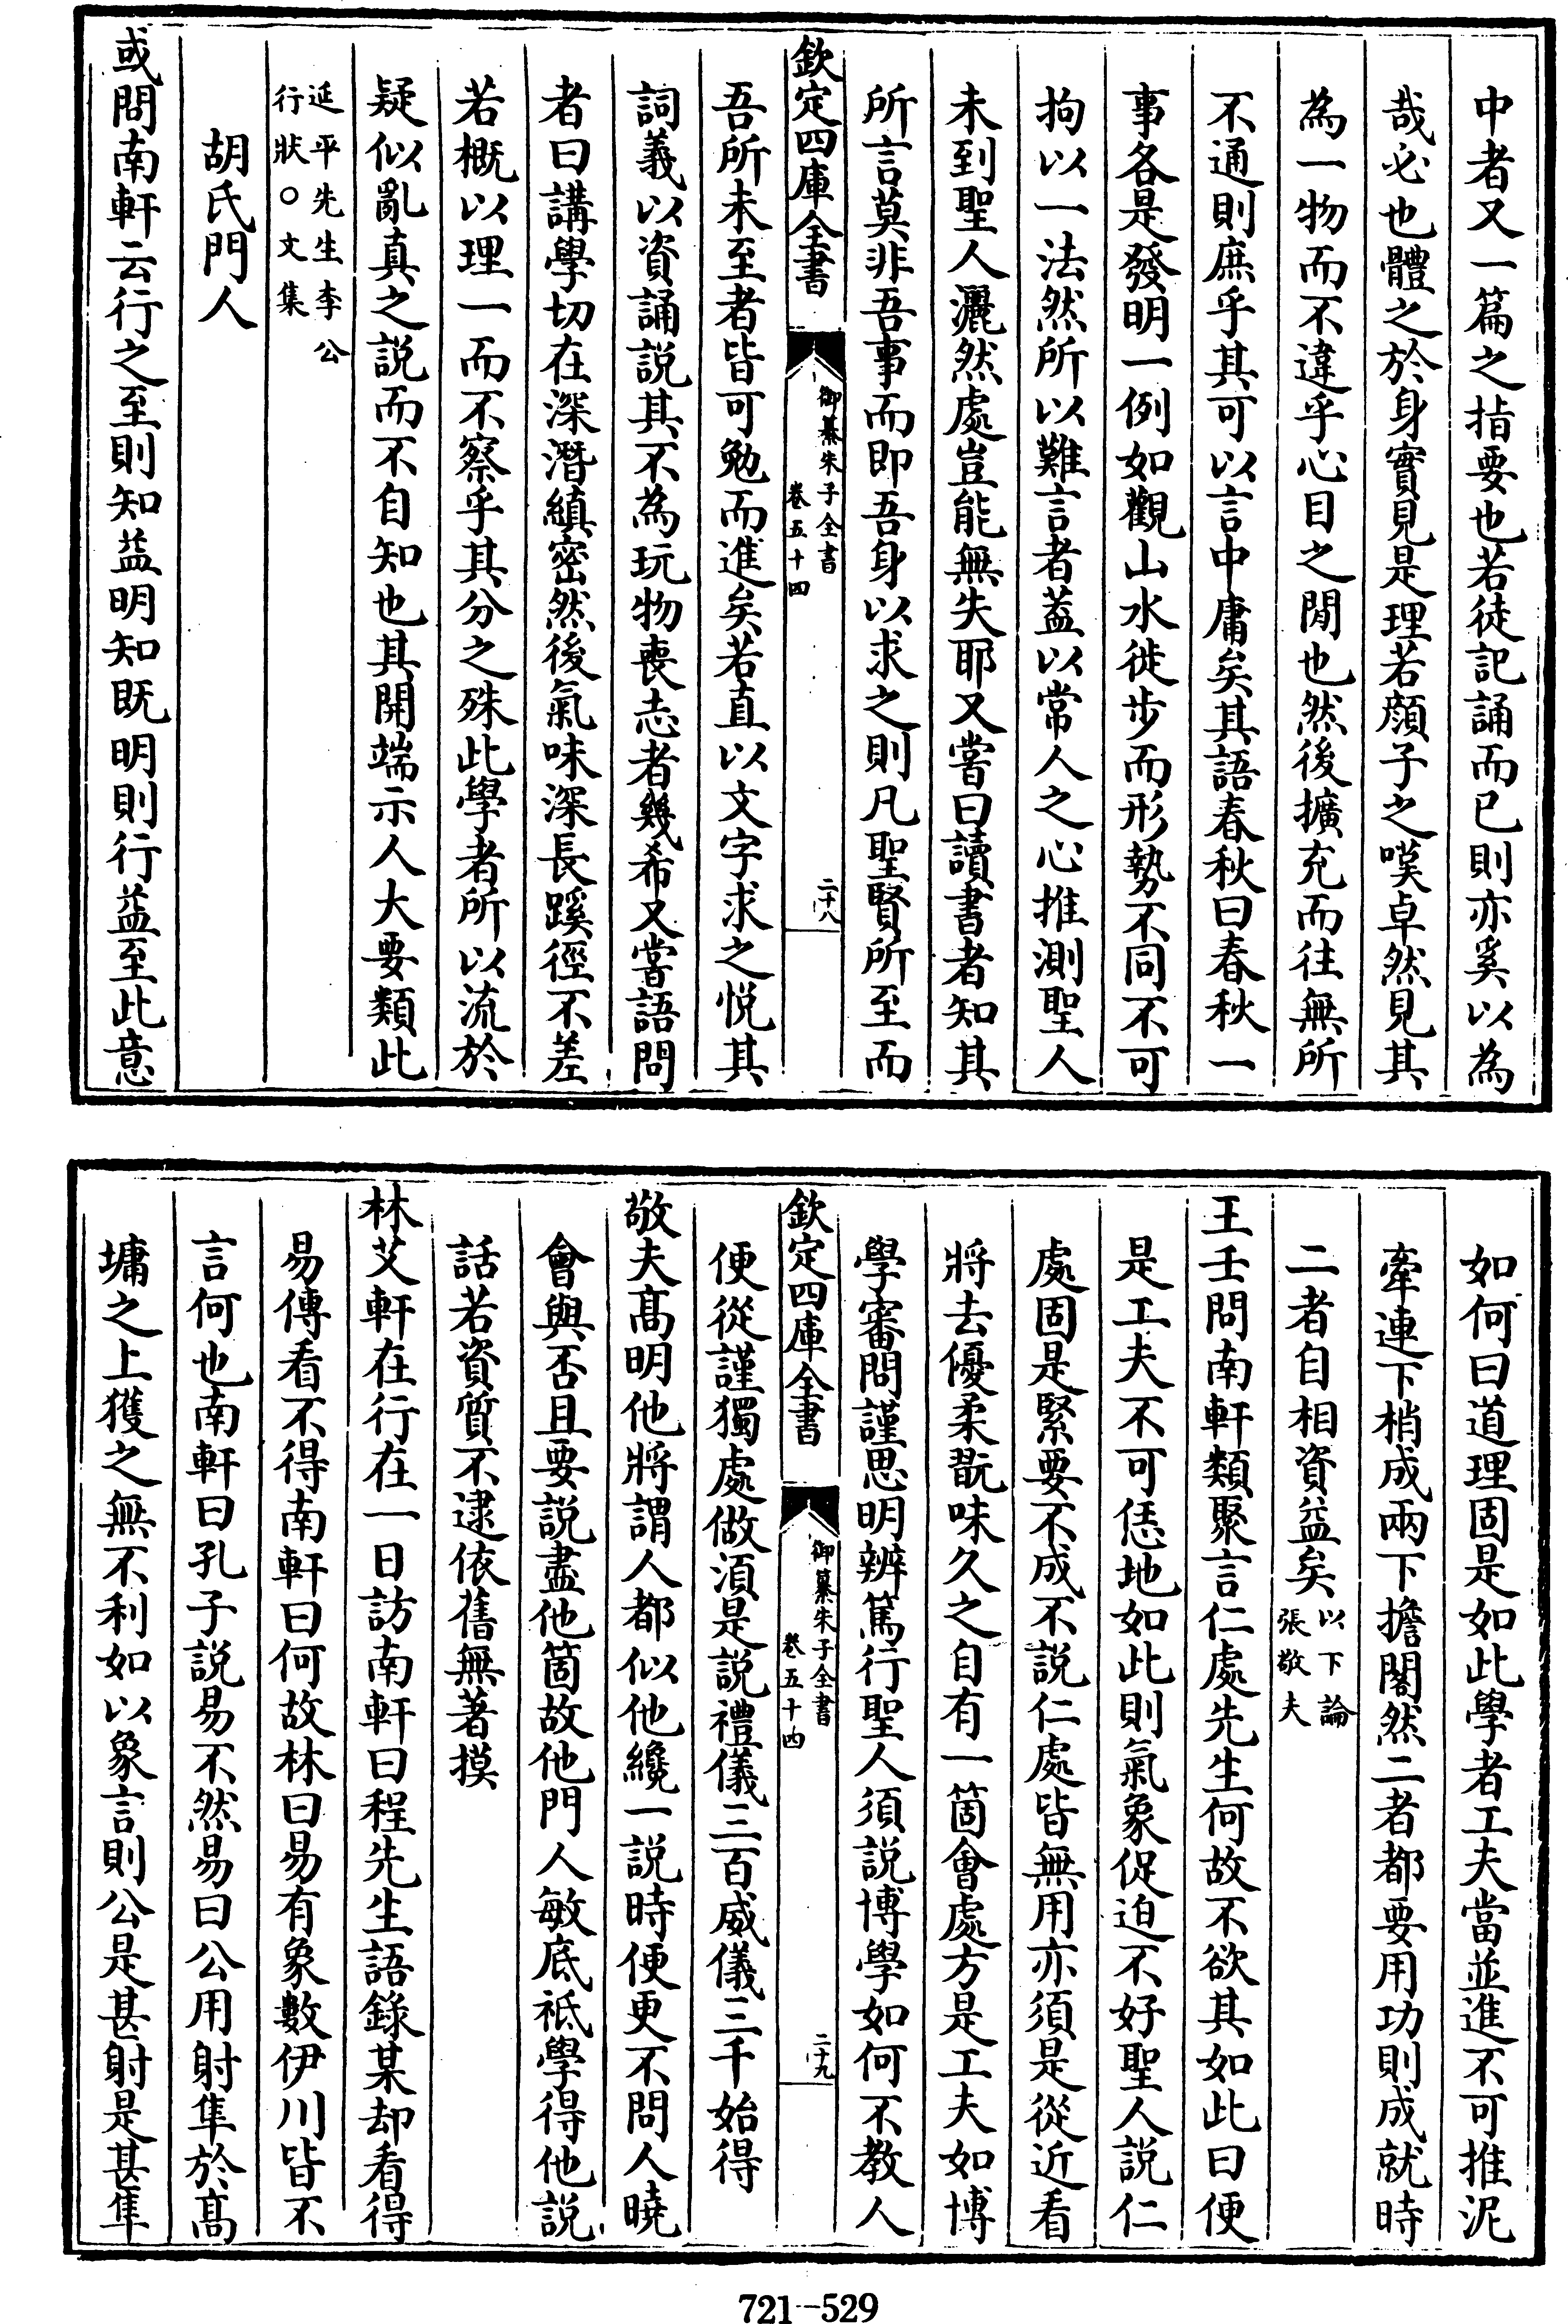 中者又一篇之指要也若徒記誦而已則亦奚以為
哉必也體之於身實見是理若顔子之嘆卓然見其
為一物而不違乎心目之閒也然後擴充而往無所
不通則庶乎其可以言中庸矣其語春秋曰春秋一
事各是發明一例如觀山水徙步而形勢不同不可
拘以一法然所以難言者葢以常人之心推測聖人
未到聖人灑然處豈能無失耶又嘗曰讀書者知其
所言莫非吾事而即吾身以求之則凡聖賢所至而
欽定四庫全書
御纂朱子全書
卷五十四
二十八
吾所未至者皆可勉而進矣若直以文字求之悦其
詞義以資誦説其不為玩物喪志者幾希又嘗語問
者曰講學切在深潛縝密然後氣味深長蹊徑不差
若概以理一而不察乎其分之殊此學者所以流於
疑似亂真之説而不自知也其開端示人大要類此
延平先生李公
行狀○文集
胡氏門人
或問南軒云行之至則知益明知既明則行益至此意
如何曰道理固是如此學者工夫當並進不可推泥
牽連下梢成兩下擔閣然二者都要用功則成就時
二者自相資益矣
以下論
張敬夫
王壬問南軒類聚言仁處先生何故不欲其如此曰便
是工夫不可恁地如此則氣象促迫不好聖人説仁
處固是緊要不成不説仁處皆無用亦須是從近看
將去優柔翫味久之自有一箇會處方是工夫如博
學審問謹思明辨篤行聖人須説博學如何不教人
欽定四庫全書
御纂朱子全書
卷五十四
二十九
便從謹獨處做須是説禮儀三百威儀三千始得
敬夫高明他將謂人都似他纔一説時便更不問人曉
會與否且要説盡他箇故他門人敏底祗學得他説
話若資質不逮依舊無著摸
林艾軒在行在一日訪南軒曰程先生語錄某却看得
易傳看不得南軒曰何故林曰易有象數伊川皆不
言何也南軒曰孔子説易不然易曰公用射隼於高
墉之上獲之無不利如以象言則公是甚射是甚隼
721-529